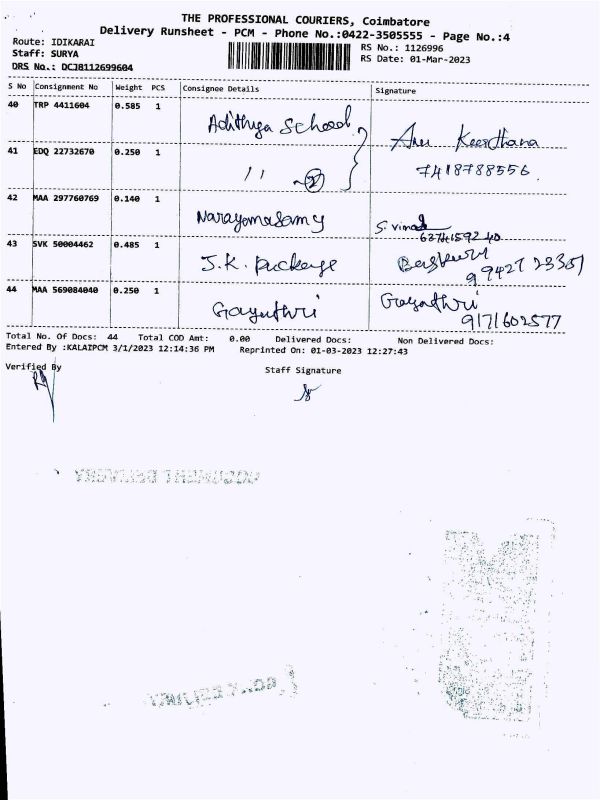 THE PROFESSIONAL COURIERS, Coimbatore
Delivery Runsheet - PCM - Phone No.:0422-3505555 - Page No.:4
Route: IDIKARAI
RS No.: 1126996
Staff: SURYA
RS Date: 01-Mar-2023
DRS No.: DCJ8112699604
S No Consignment No Weight PCS Consignee Details Signature
40 TRP 4411604 0.585 1 Adithya School
Anu Keerthana
41 EDQ 22732670 0.250 1 11 2 7418788556.
42 MAA 297760769 0.140 1 Narayanasamy S. Vimal
43 SVK 50004462 0.485 1 J.K. Package
44 MAA 569084040 0.250 1 Gayathri Gayathri
9171602577
Total No. Of Docs: 44 Total COD Amt: 0.00 Delivered Docs: Non Delivered Docs:
Entered By :KALAIPCM 3/1/2023 12:14:36 PM Reprinted On: 01-03-2023 12:27:43
Verified By Staff Signature